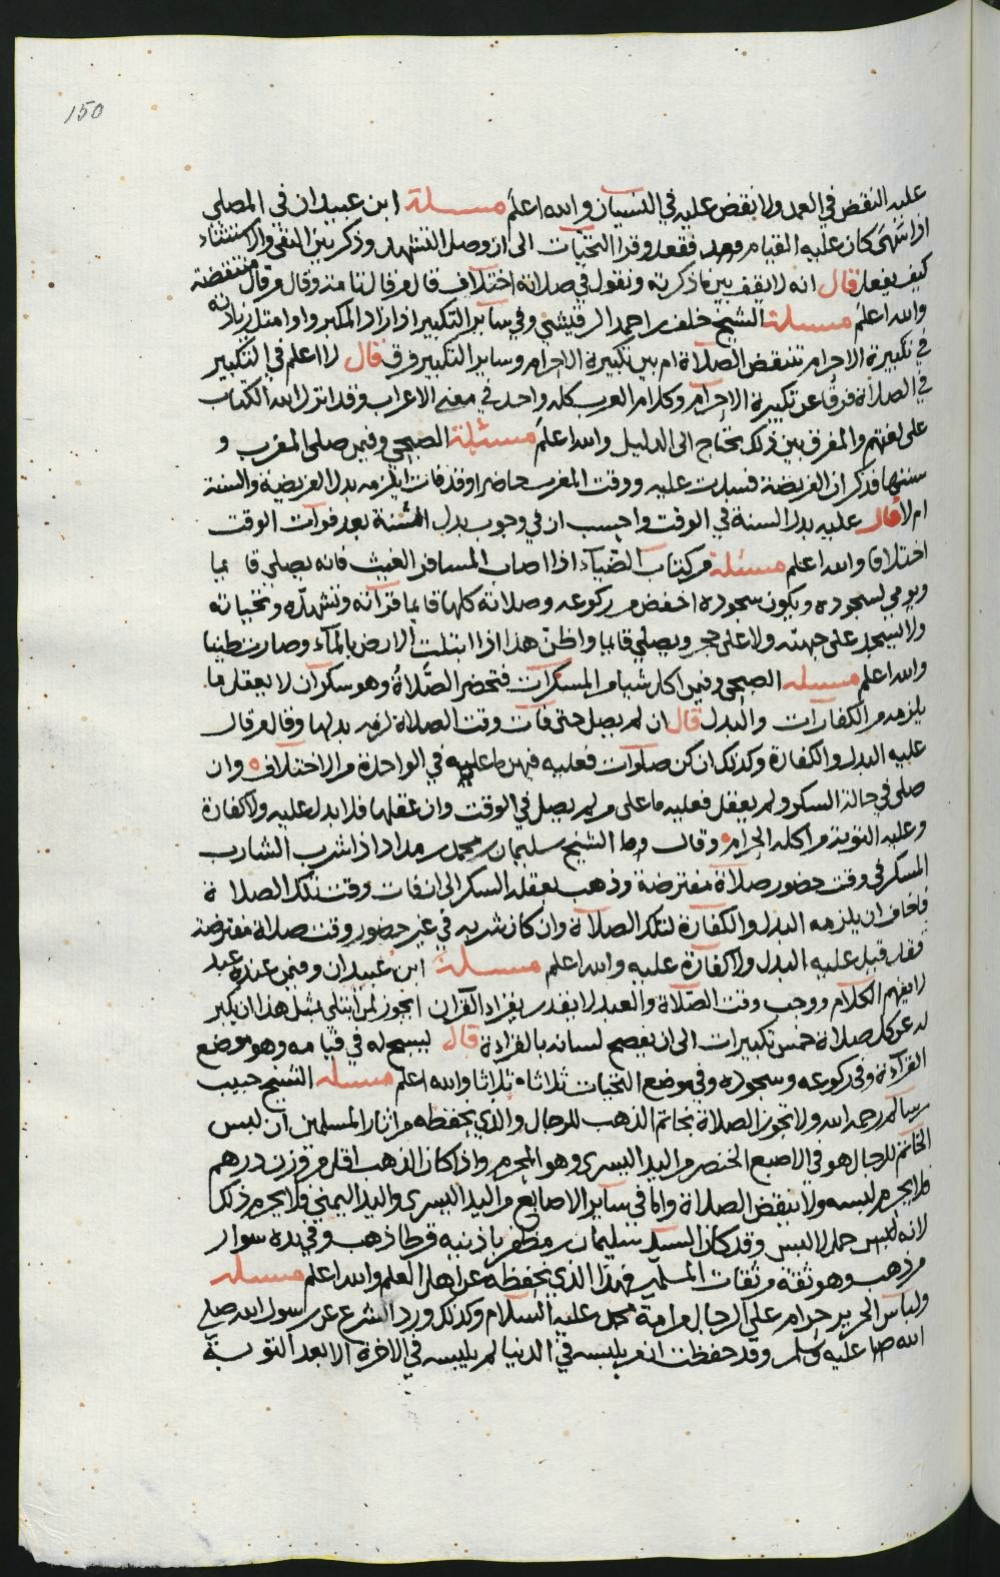 150
عليه النقض في العمد ولا نقض عليه في النسيان والله اعلم مسئلة ابن عبيدان في المصلي
اذا انتهى كان عليه القيام فقعد وقرا التحيات الى ان وصل التشهد وذكر بين النفي والاستثناء
كيف يفعل قال انه لا يقف بين ما ذكرته ونقول في صلاته اختلاف قال من قال تامة وقال من قال منتقضة
والله اعلم مسئلة الشيخ خلف بن احمد الرقيشي وفي سائر التكبير اذا زاد المكبر واوا مثل زيادته
في تكبيرة الاحرام تنتقض الصلاة ام بين تكبيرة الاحرام وسائر التكبير فرق قال لا اعلم في التكبير
في الصلاة فرقا عن تكبيرة الاحرام وكلام العرب كله واحد في معنى الاعراب وقد انزل الله الكتاب
على لغتهم والمفرق بين ذلك يحتاج الى الدليل والله اعلم مسئلة الصبحي وفيمن صلى المغرب و
سننها فذكر ان الفريضة فسدت عليه ووقت المغرب حاضر او قد فات ايلزمه بدل الفريضة والسنة
ام لا قال عليه بدل السنة في الوقت واحسب ان في وجوب بدل السنة بعد فوات الوقت
اختلافا والله اعلم مسئلة من كتاب الضياء اذا اصاب المسافر الغيث فانه يصلي قائما
ويومي لسجوده ويكون سجوده اخفض من ركوعه وصلاته كلها قائما قرآنه وتشهده وتحياته
ولا يسجد على جبهته ولا على حجر ويصلي قائما واظن هذا اذا ابتلت الارض بالماء وصارت طينا
والله اعلم مسئلة الصبحي وفيمن اكل شيا من المسكرات فتحضر الصلاة وهو سكران لا يعقل ما
يلزمه من الكفارات والبدل قال ان لم يصل حتى فات وقت الصلاة لزمه بدلها وقال من قال
عليه البدل والكفارة وكذلك ان كن صلوات فعليه فيهن ما عليه في الواحدة من الاختلاف ه وان
صلى في حالة السكر ولم يعقل فعليه ما على من لم يصل في الوقت وان عقلها فلا بدل عليه ولا كفارة
وعليه التوبة من اكله الحرام ه وقال الشيخ سليمان بن محمد بن مداد اذا شرب الشارب
المسكر في وقت حضور صلاة مفترضة وذهب بعقله السكر الى ان فات وقت تلك الصلاة
فاخاف ان يلزمه البدل والكفارة لتلك الصلاة وان كان شربه في غير حضور وقت صلاة مفترضة
فقد قيل عليه البدل ولا كفارة عليه والله اعلم مسئلة ابن عبيدان وفيمن عنده عبد
لا يفهم الكلام ووجب وقت الصلاة والعبد لا يقدر يقرا القرآن ايجوز لمن ابتلي بمثل هذا ان يكبر
له عن كل صلاة خمس تكبيرات الى ان يفصح لسانه بالقراءة قال يسبح له في قيامه وهو موضع
القراءة وفي ركوعه وسجوده وفي موضع التحيات ثلاثا ثلاثا والله اعلم مسئلة الشيخ حبيب
بن سالم رحمه الله ولا تجوز الصلاة بخاتم الذهب للرجال والذي يحفظه من اثار المسلمين ان لبس
الخاتم للرجال هو في الاصبع الخنصر من اليد اليسرى وهو المحرم واذا كان الذهب اقل من وزن درهم
فلا يحرم لبسه ولا ينقض الصلاة واما في سائر الاصابع من اليد اليسرى واليد اليمنى فلا يحرم ذلك
لانه ليس حمل اللبس وقد كان السيد سليمان بن مظفر باذنيه قرطا ذهب وفي يده سوار
من ذهب وهو ثقة من ثقات المسلمين فهذا الذي نحفظه عن اهل العلم والله اعلم مسئلة
ولباس الحرير حرام على الرجال من امة محمد عليه السلام وكذلك ورد الشرع عن رسول الله صلى
الله عليه وسلم وقد حفظت انه من يلبسه في الدنيا لم يلبسه في الاخرة الا بعد التوبة